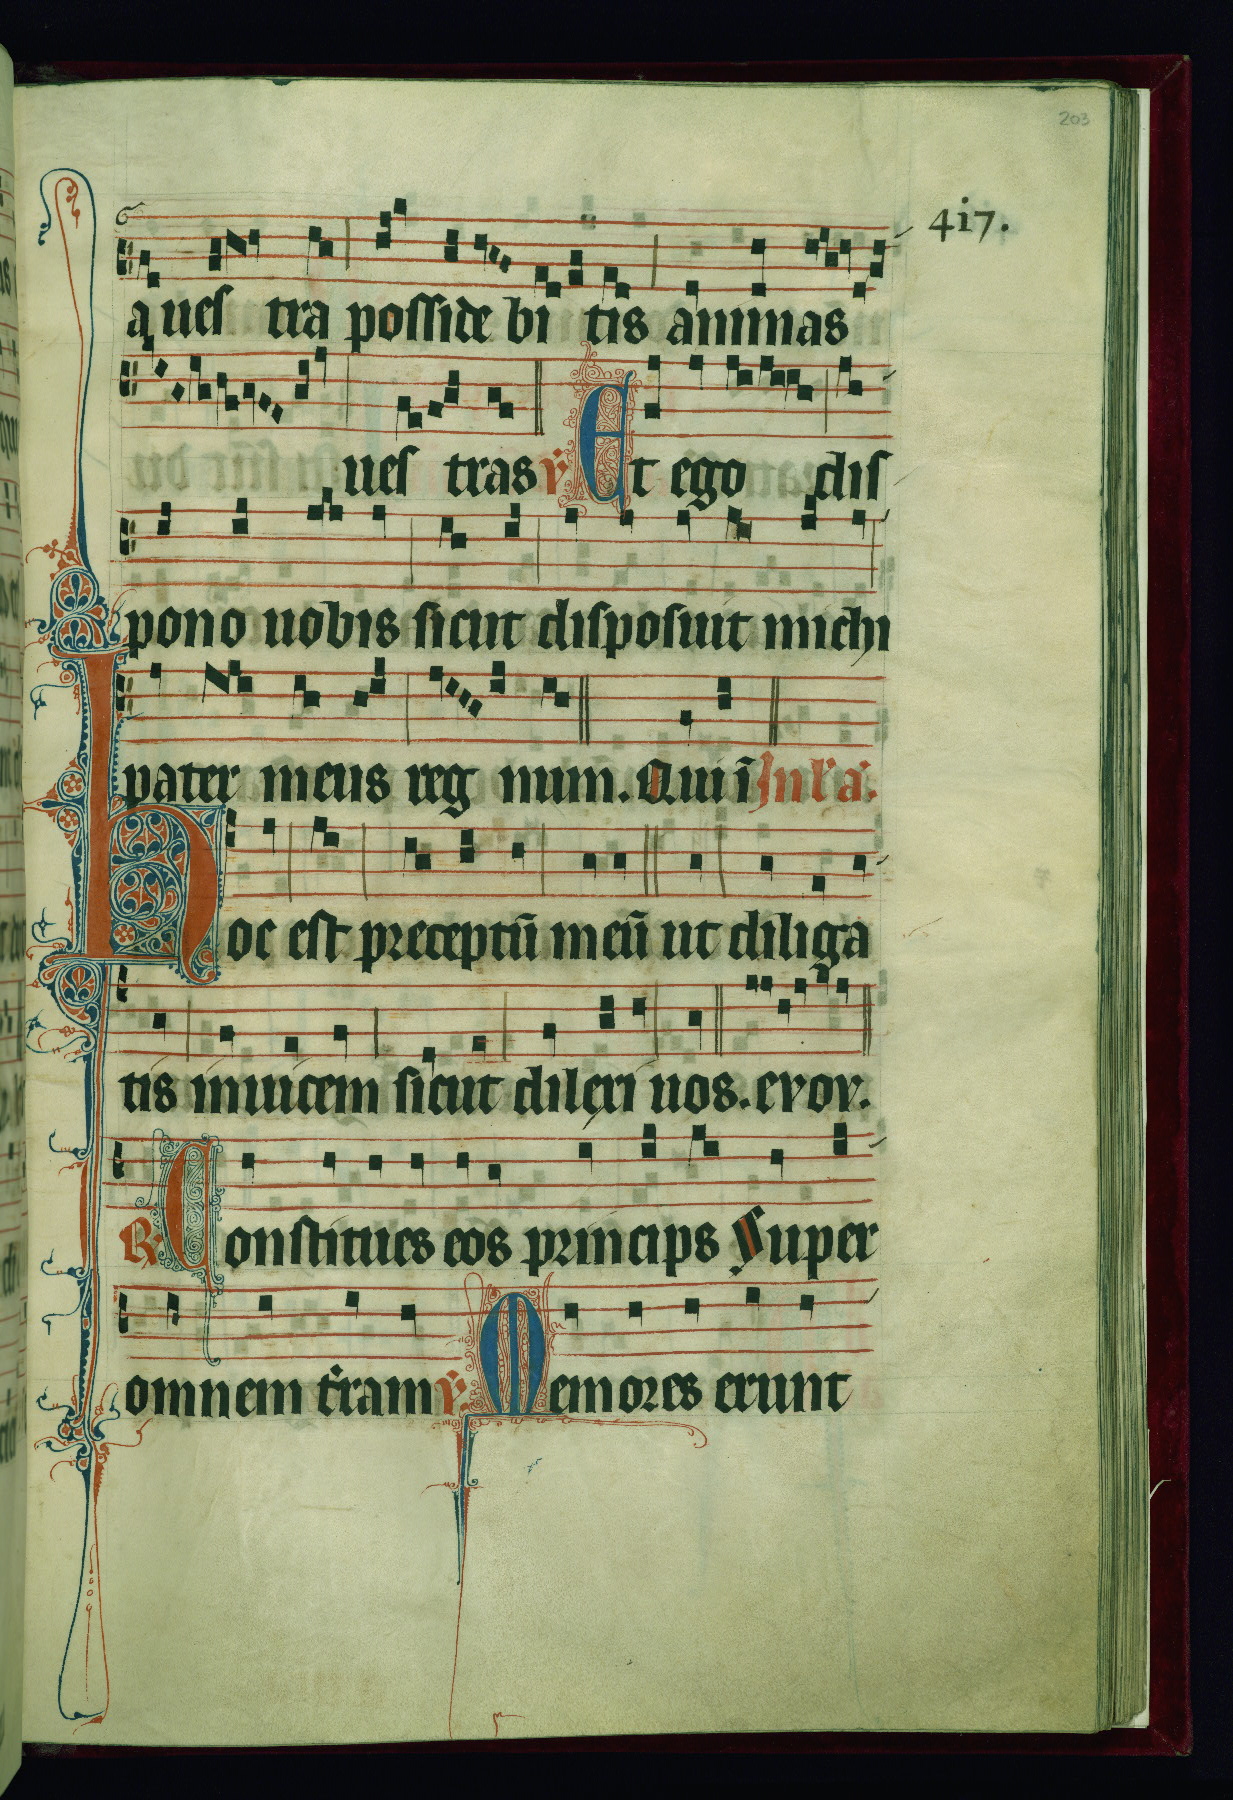 203
417.
a ues tra posside bi tis animas
ues tras ℣ Et ego dis
pono uobis sicut disposuit michi
pater meus reg num. Qui ī In laꝰ.
Hoc est preceptū meū ut diliga
tis inuicem sicut dilexi uos. evov.
℟ Constitues eos principes Super
omnem t̄ram ℣ Memores erunt